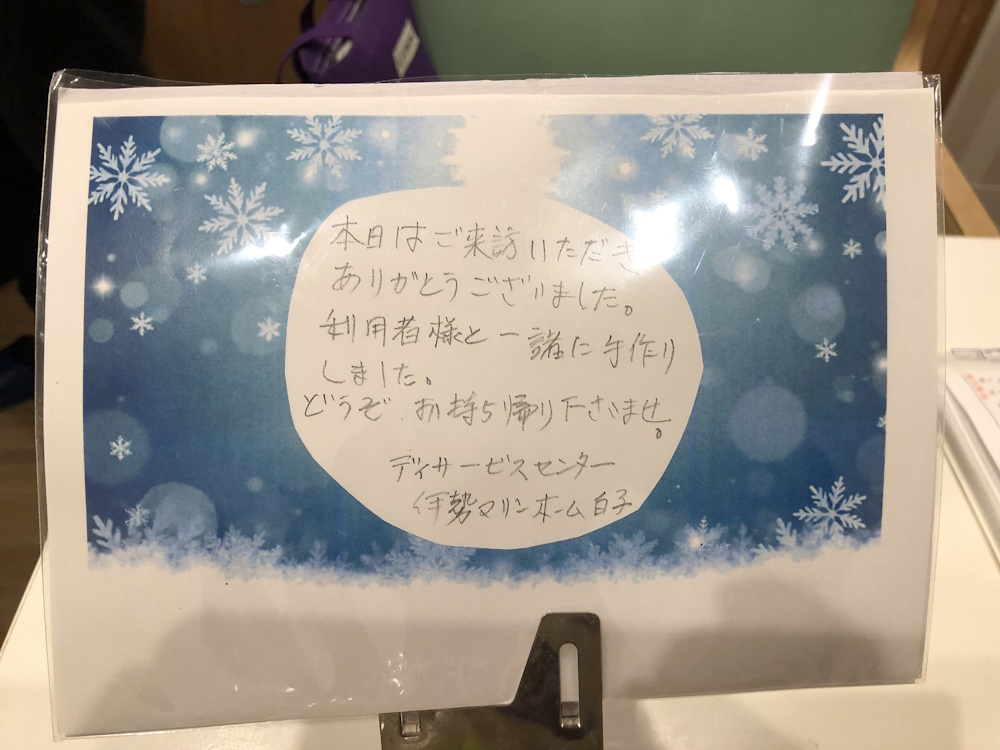 本日はご来訪いただき
ありがとうございました。
利用者様と一諸に手作り
しました。
どうぞ、お持ち帰り下さいませ。
デイサービスセンター
伊勢マリンホーム白子